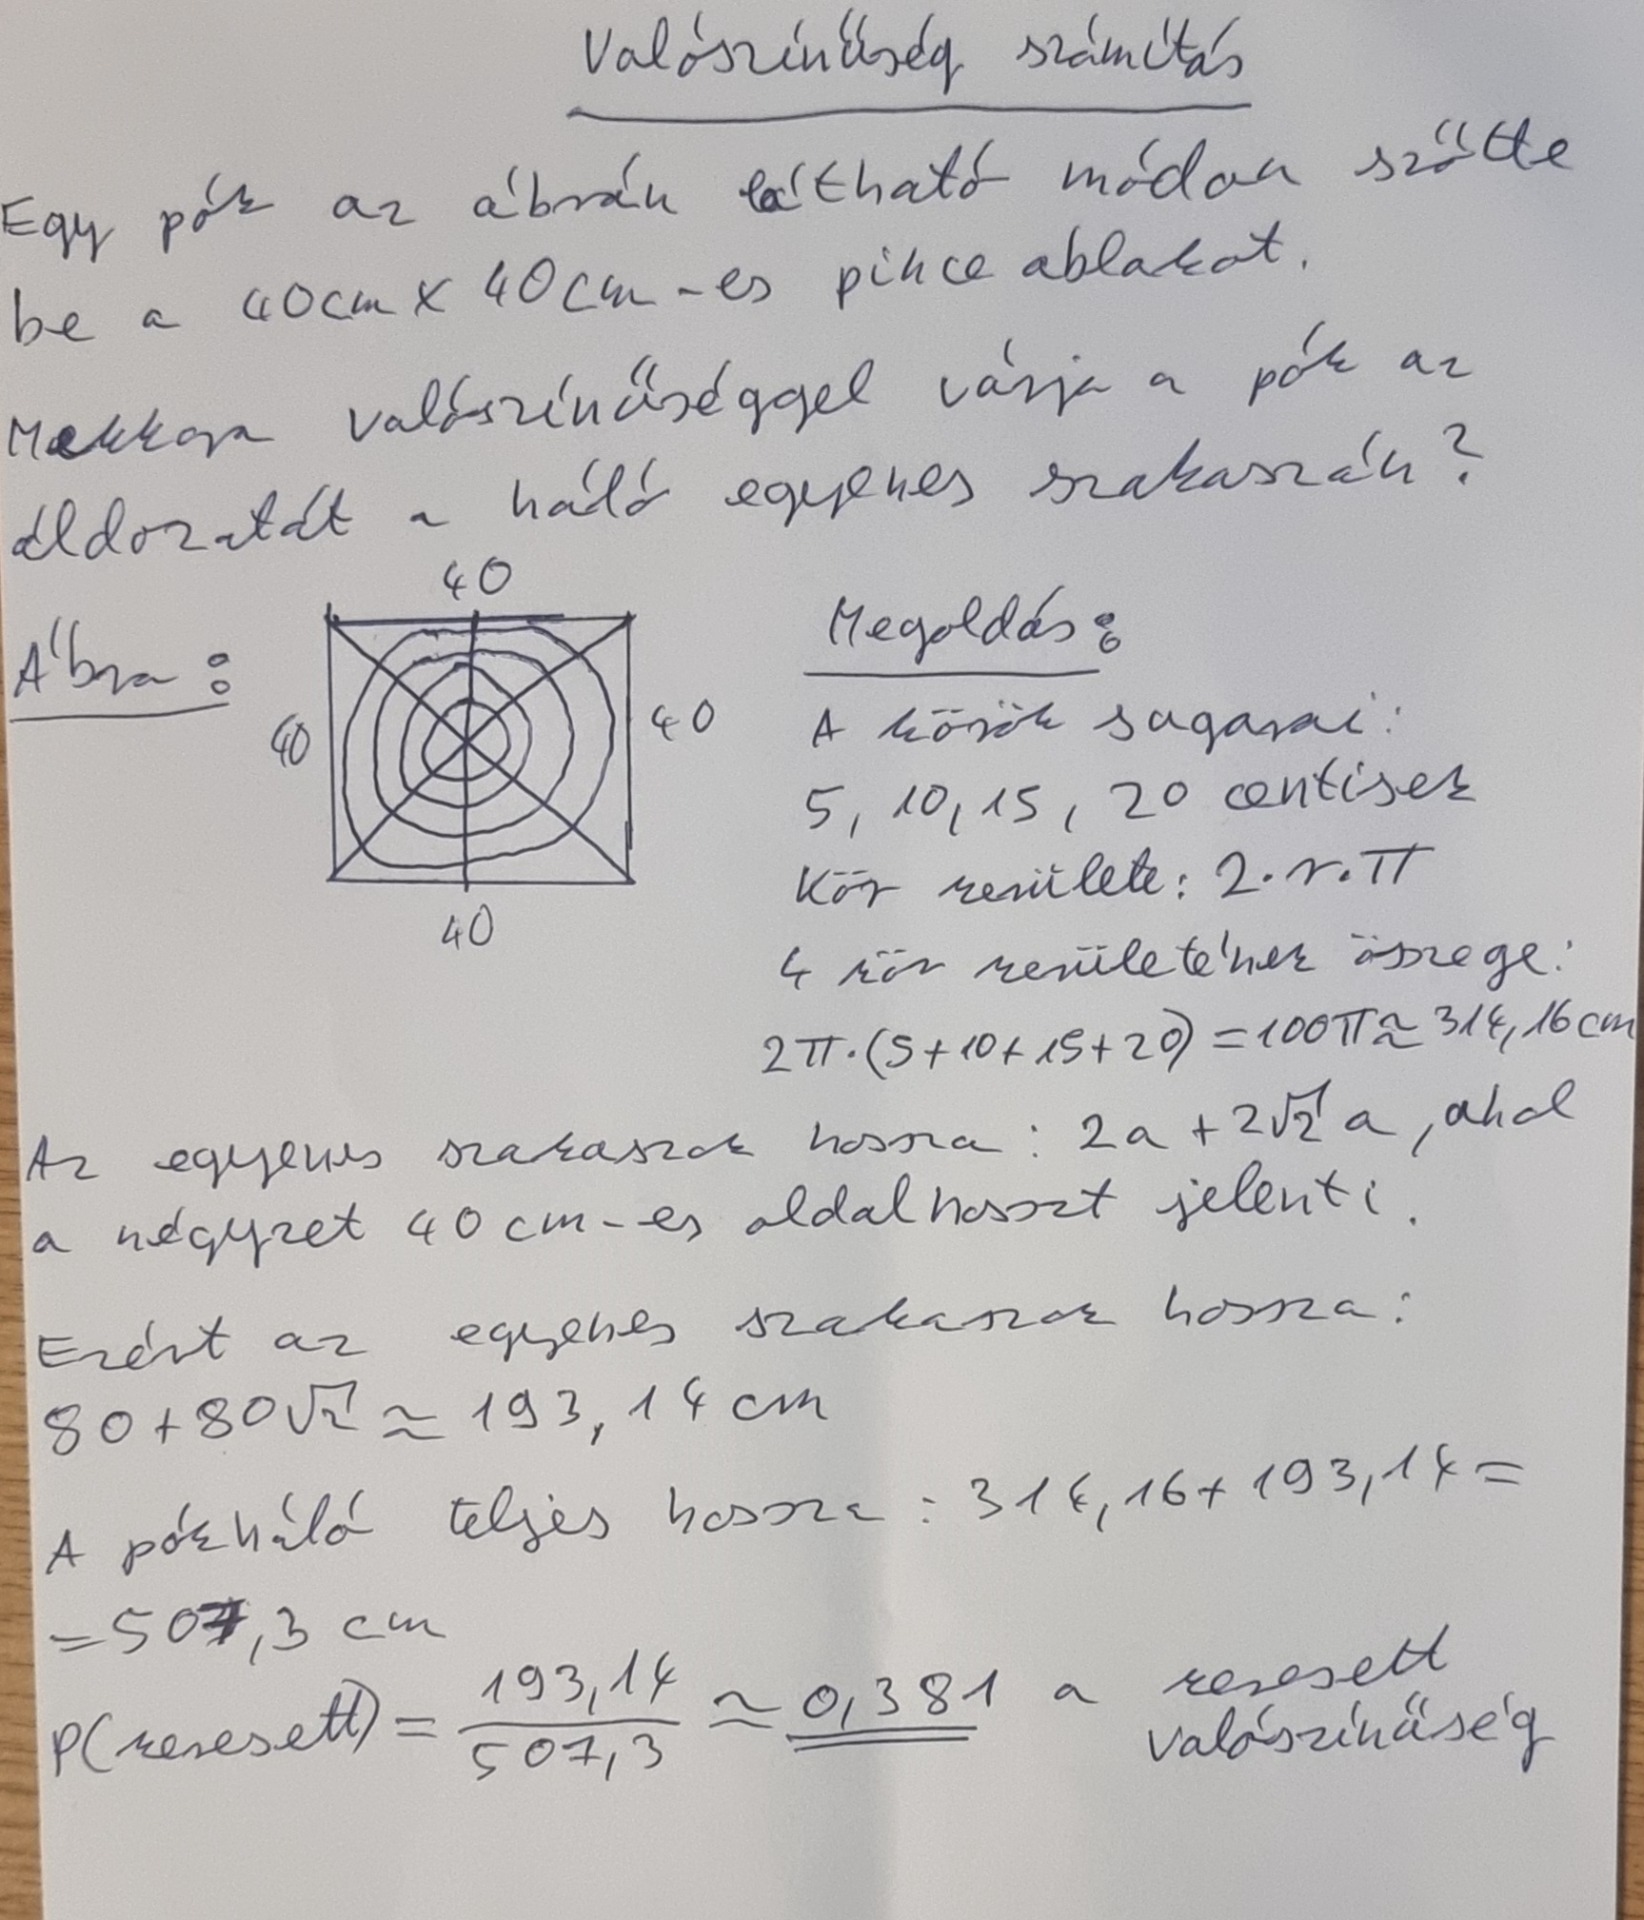 Valószínűség számítás
Egy pók az ábrán látható módon szőtte
be a 40cm x 40cm-es pince ablakot.
Mekkora valószínűséggel várja a pók az
áldozatát a háló egyenes szakaszán?
40
Ábra:
40
40
40
Megoldás:
A körök sugarai:
5, 10, 15, 20 centisek
Kör kerülete: 2·r·π
4 kör kerületének összege:
2π·(5+10+15+20)=100π≈314,16cm
Az egyenes szakaszok hossza: 2a+2√2 a, ahol
a négyzet 40 cm-es oldalhosszt jelenti.
Ezért az egyenes szakaszok hossza:
80+80√2≈193,14 cm
A pókháló teljes hossza: 314,16+193,14=
=507,3 cm
P(keresett)=193,14/507,3≈0,381 a keresett
valószínűség